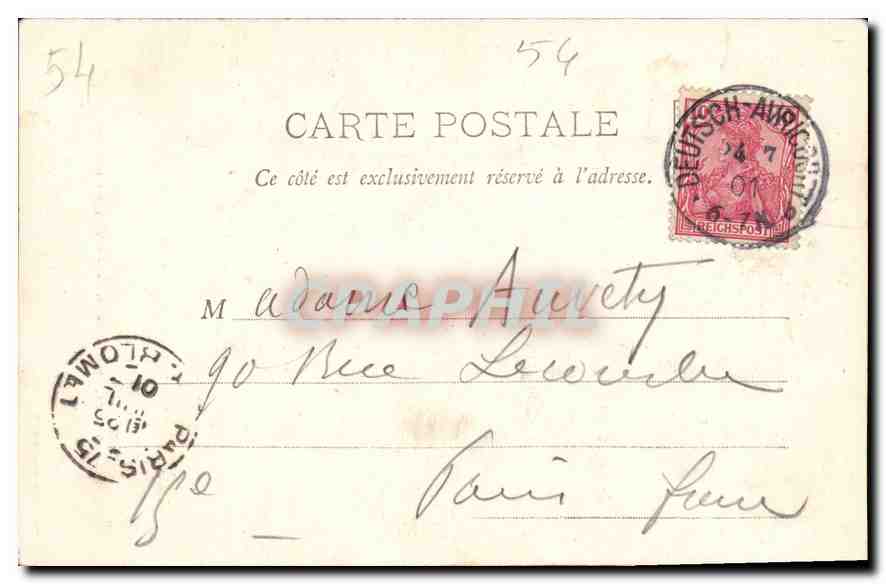 54
54
CARTE POSTALE
Ce côté est exclusivement réservé à l'adresse.
DEUTSCH-AVRICOURT
24 7
01
6-7N
REICHSPOST
Madame Auvety
90 Rue Lecourbe
15e Paris
CPAPHIL
PARIS-15 R. BLOMET
25
JUIL
01